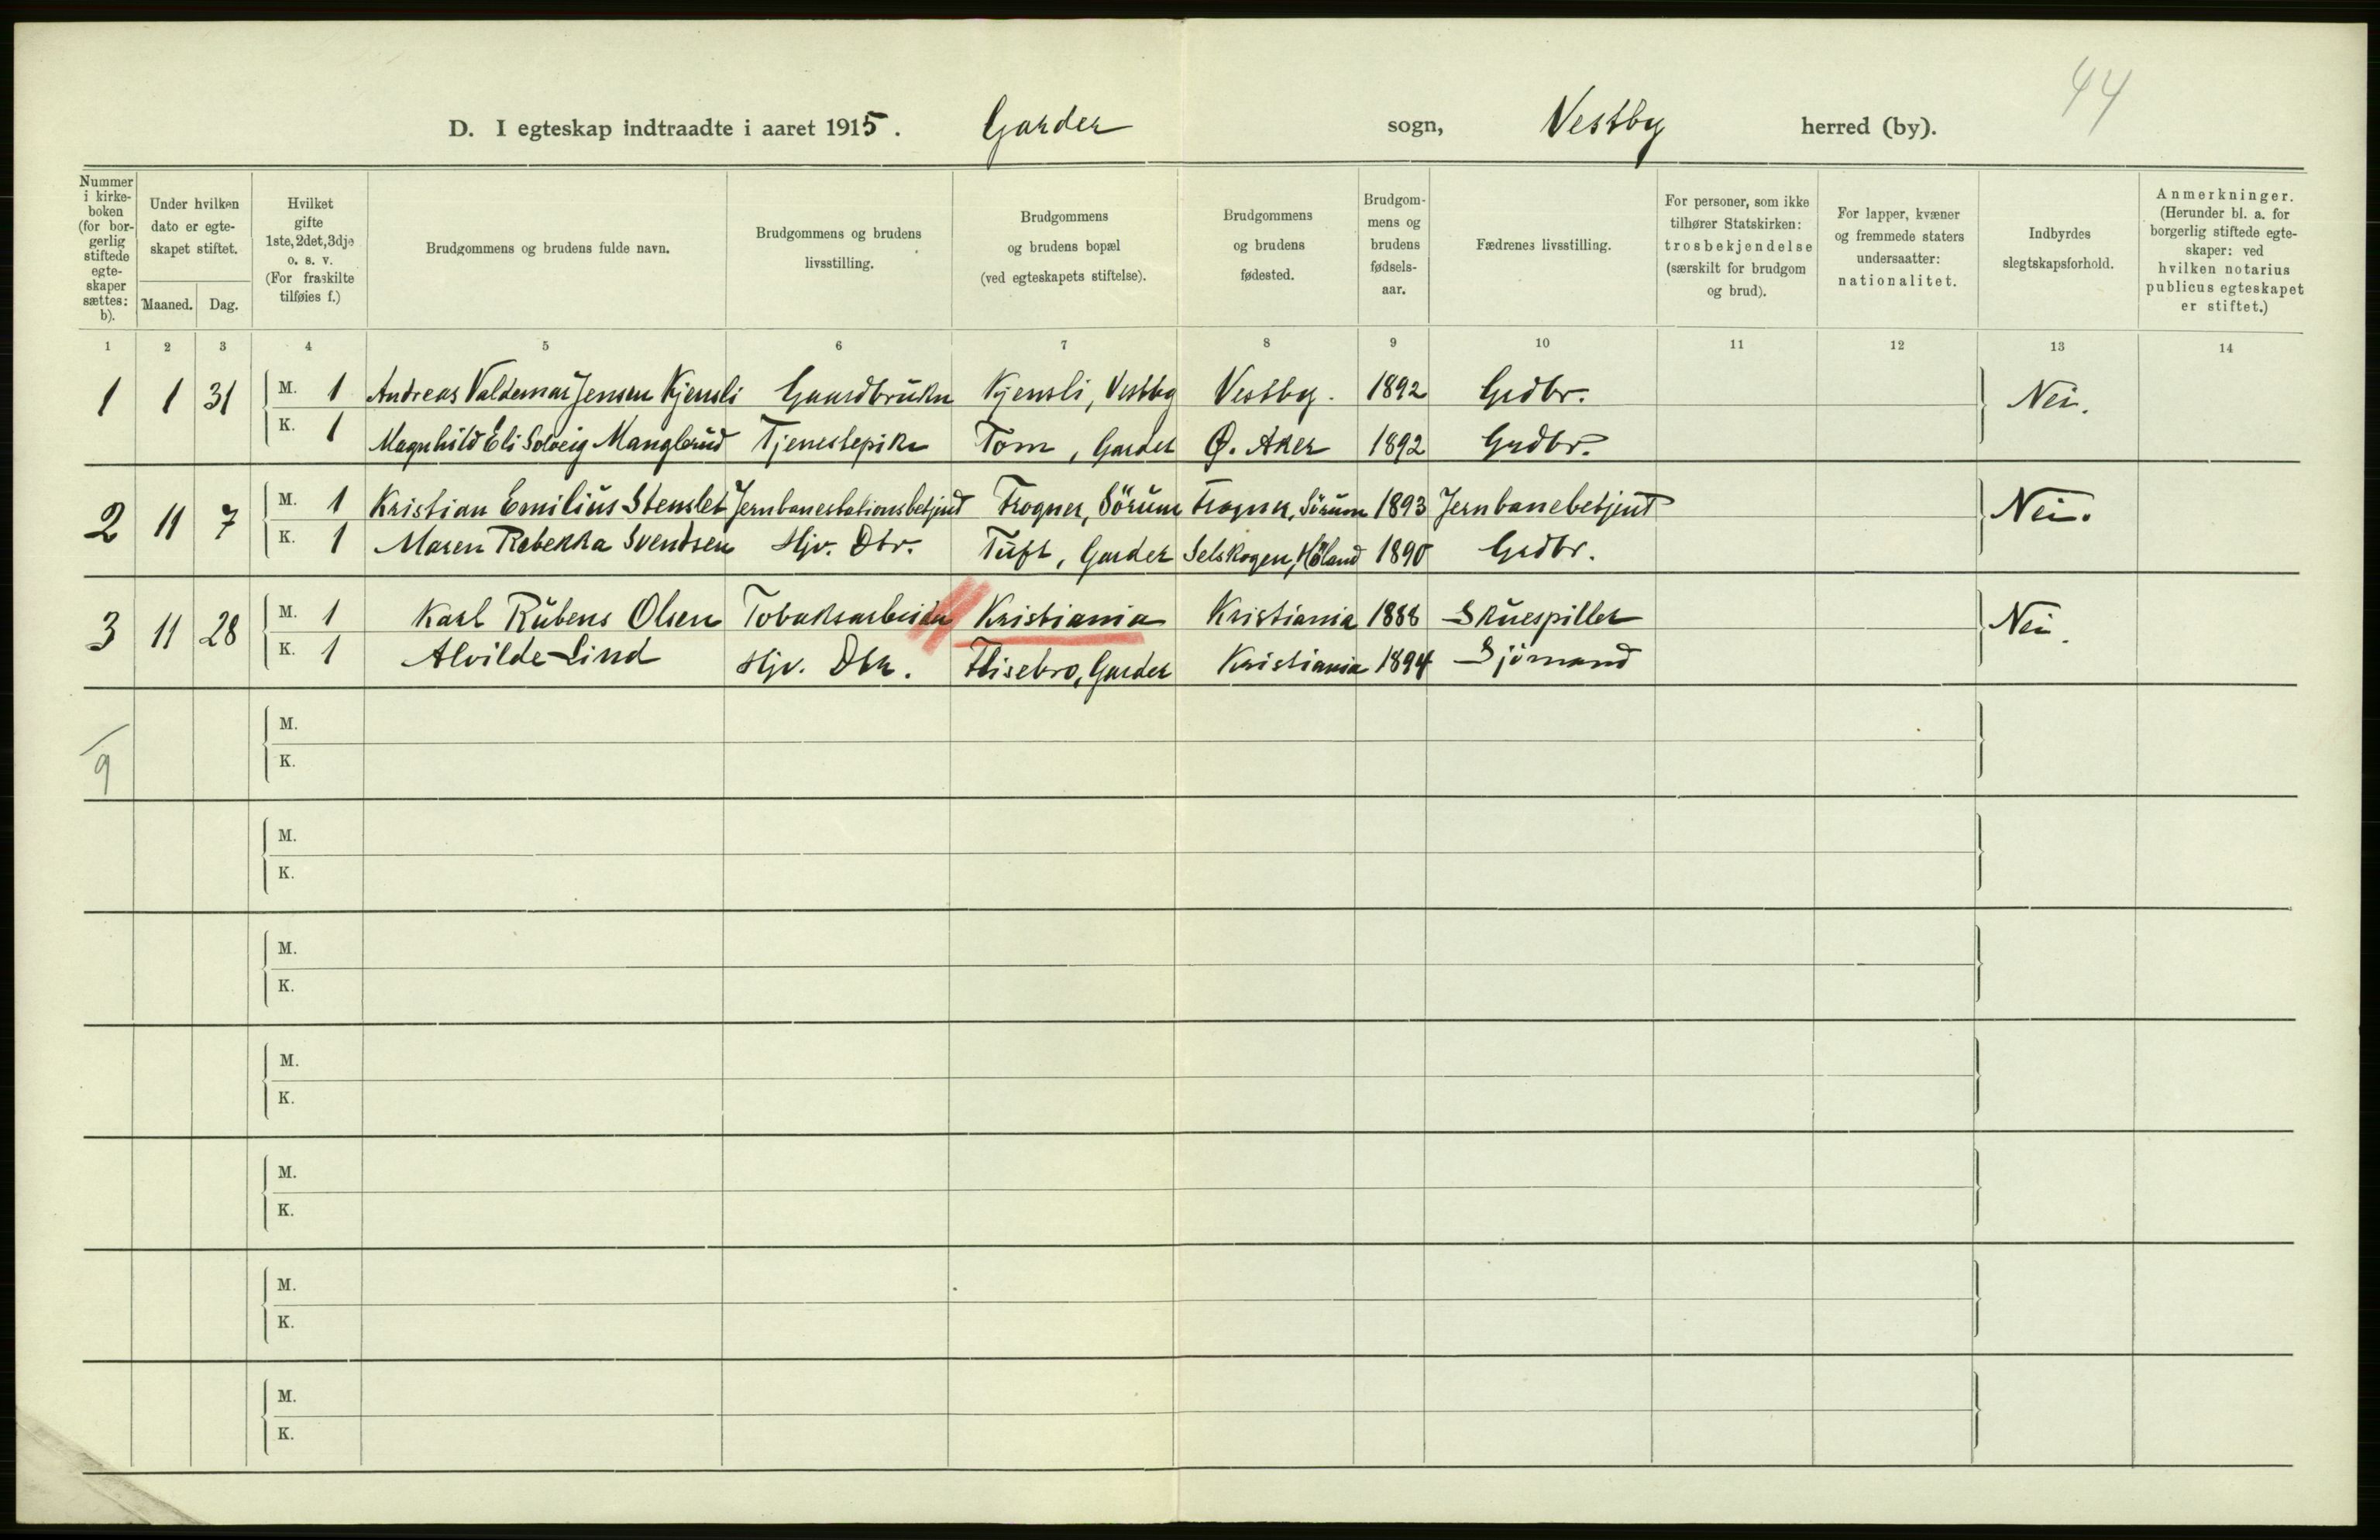 44
D. I egteskap indtraadte i aaret 1915. Garder sogn, Vestby herred (by).
Nummer i kirke-boken (for bor-gerlig stiftede egte-skaper sættes: b).
Under hvilken dato er egte-skapet stiftet.
Maaned. Dag.
Hvilket gifte 1ste, 2det, 3dje o. s. v. (For fraskilte tilføies f.)
Brudgommens og brudens fulde navn.
Brudgommens og brudens livsstilling.
Brudgommens og brudens bopæl (ved egteskapets stiftelse).
Brudgommens og brudens fødested.
Brudgom-mens og brudens fødsels-aar.
Fædrenes livsstilling.
For personer, som ikke tilhører Statskirken: trosbekjendelse (særskilt for brudgom og brud).
For lapper, kvæner og fremmede staters undersaatter: nationalitet.
Indbyrdes slegtskapsforhold.
Anmerkninger. (Herunder bl. a. for borgerlig stiftede egte-skaper: ved hvilken notarius publicus egteskapet er stiftet.)
1 2 3 4 5 6 7 8 9 10 11 12 13 14
1 1 31 M. 1 Andreas Valdemar Jensen Kjensli Gaardbruker Kjensli, Vestby Vestby. 1892 Grdbr. Nei.
K. 1 Magnhild Eli Solveig Manglerud Tjenestepike Tom, Garder Ø. Aker 1892 Grdbr.
2 11 7 M. 1 Kristian Emilius Stenslet Jernbanestationsbetjent Frogner, Sörum Frogner, Sörum 1893 Jernbanebetjent Nei.
K. 1 Maren Rebekka Svendsen Hjv. Dtr. Tuft, Garder Selskogen, Höland 1890 Grdbr.
3 11 28 M. 1 Karl Rubens Olsen Tobaksarbeider Kristiania Kristiania 1888 Skuespiller Nei.
K. 1 Alvilde Lind Hjv. Dtr. Flisebro, Garder Kristiania 1894 Sjömand
9
M.
K.
M.
K.
M.
K.
M.
K.
M.
K.
M.
K.
M.
K.